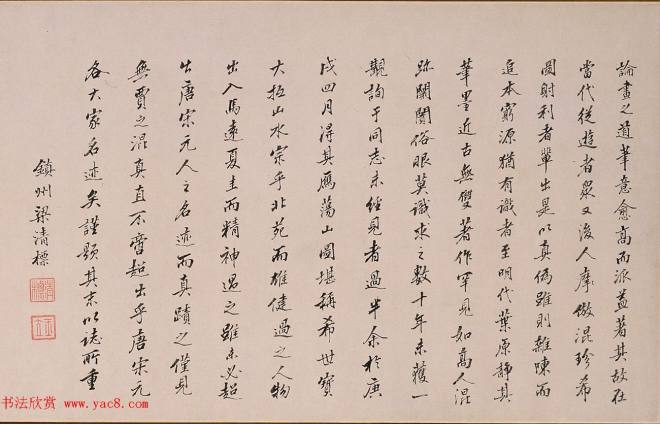 論畫之道筆意愈高而派益著其故在
當代從遊者衆又後人摩倣混珍希
圖射利者輩出是以真偽雖則雜陳而
追本窮源猶有識者至明代葉原靜其
筆墨近古無雙著作罕見如高人混
跡闤闠俗眼莫識求之數十年未獲一
觀詢于同志未經見者過半余於庚
戌四月得其鴈蕩山圖堪稱希世寶
大抵山水宗乎北苑而雄健過之人物
出入馬遠夏圭而精神過之雖未必超
出唐宋元人之名迹而真蹟之僅見
無賈之混真直不啻超出乎唐宋元
各大家名迹矣謹題其末以誌所重
鎮州梁清標
书法欣赏 www.yac8.com